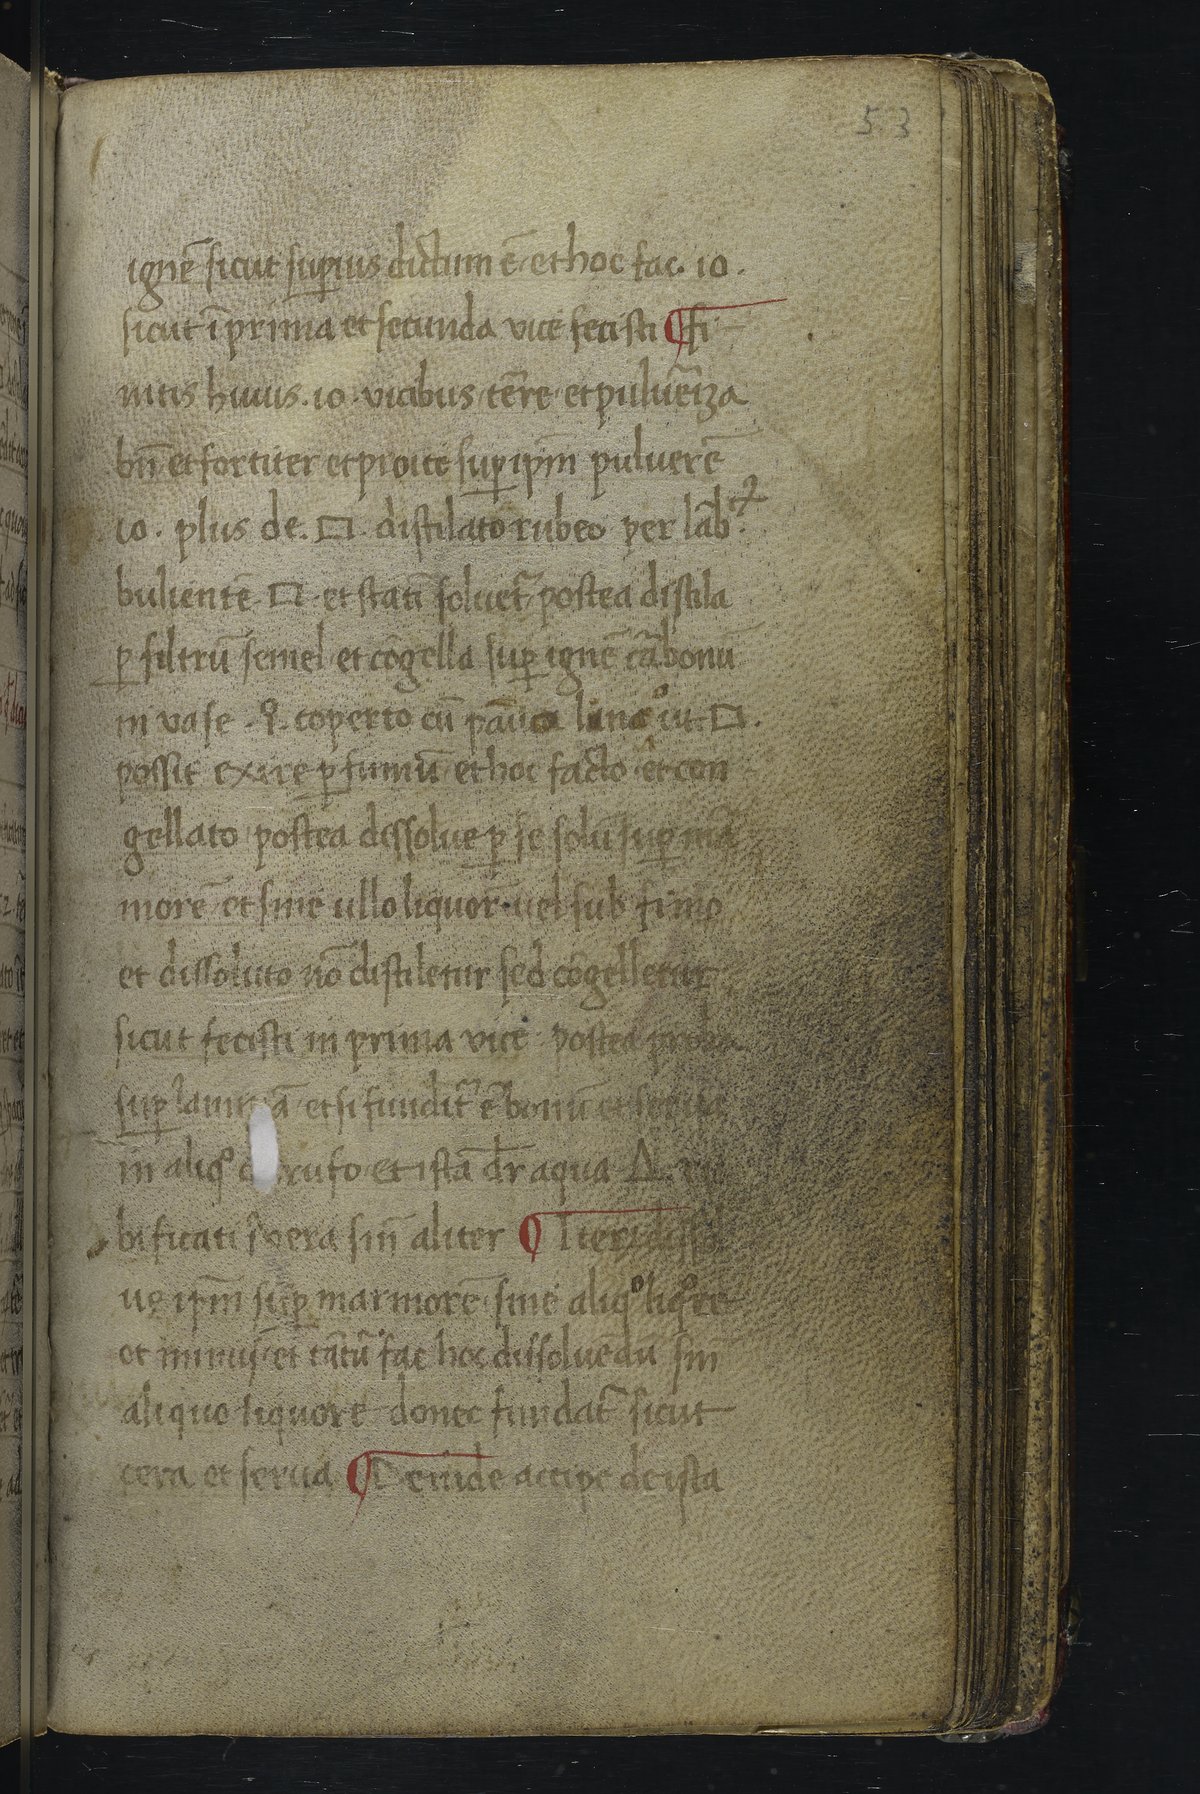 53
ignē sicut suꝑius dictum ē et hoc fac. 10.
sicut ī prima et secunda vice fecisti ¶ fi
nitis huius. 10. vicibus tēre et pulvēriza
bn̄ et fortiter et proice suꝑ ipm̄ pulverē
10. plus de. □. distilato rubeo per lāb.
bulientē □. et statī solvet᷑ postea distila
ꝑ filtrū semel et cōgella suꝑ ignē cābonū
in vase. coperto cū pāno lineo ut □.
possit exire ꝑ fumū et hoc facto et con
gellato postea dissolve ꝑ se solū suꝑ mā
morē et sine ullo liquor̄ vel sub fimo
et dissoluto nō distiletur sed cōgelletur
sicut fecisti in prima vice postea proba
suꝑ lam ā et si fundit᷑ ē bonū et serva
in aliqo et ista dr̄ aqua Δ.
bificati vera sin̄ aliter ¶ Iter dissol
ve ipm̄ suꝑ marmorē sine aliqo liqore
ot et tātū fac hoc dissolvēdū sin̄
aliquo liquore donec fundat᷑ sicut
cera et serva ¶ Deinde accipe de ista